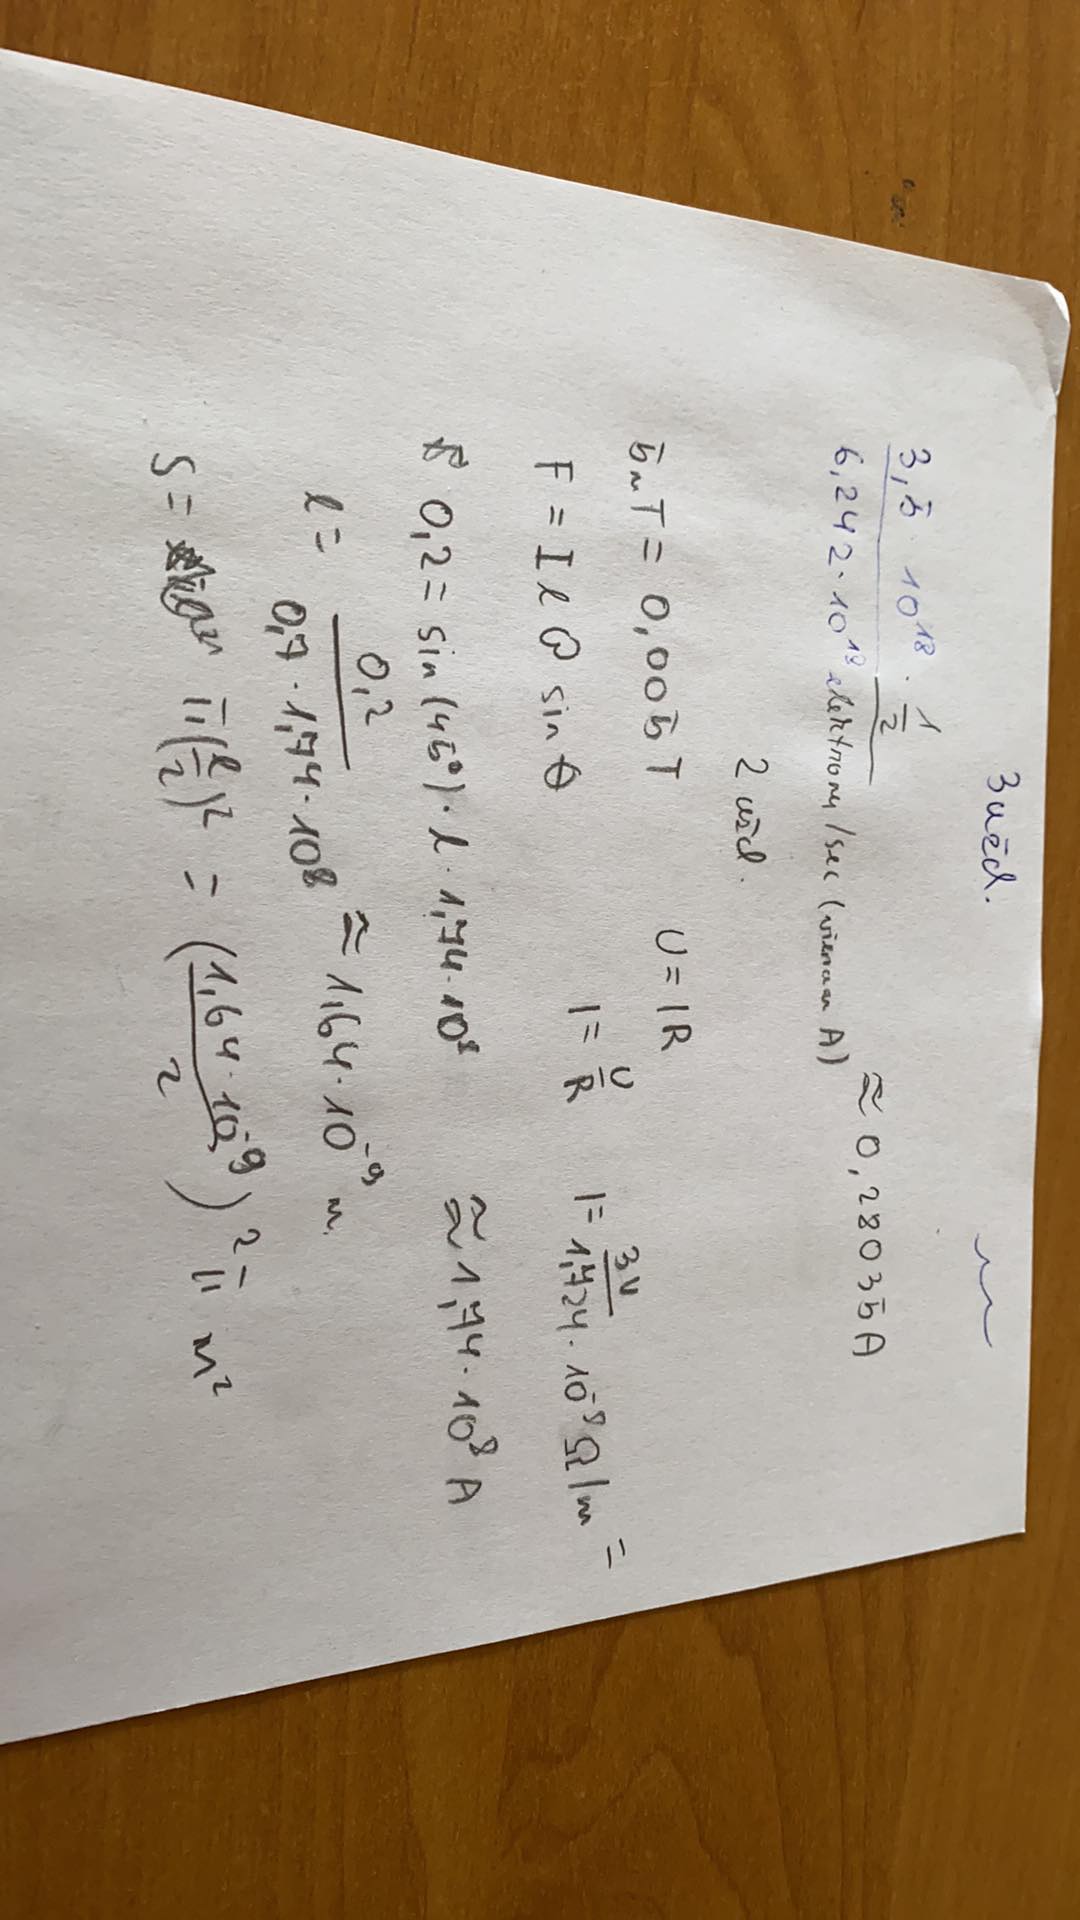 3 užd.
3,5 · 10^18 · 1/2
6,242 · 10^18 elektronų/sec (vienam A) ≈ 0,28035A
2 užd.
5mT = 0,005T
U = IR
I = U/R
I = 3V / 1,724 · 10^-8 Ω/m =
F = I l B sin θ
≈ 1,74 · 10^8 A
0,2 = sin(45°) · l · 1,74 · 10^8
l = 0,2 / 0,7 · 1,74 · 10^8 ≈ 1,64 · 10^-9 m.
S = π(l/2)^2 = (1,64 · 10^-9 / 2)^2 π m^2